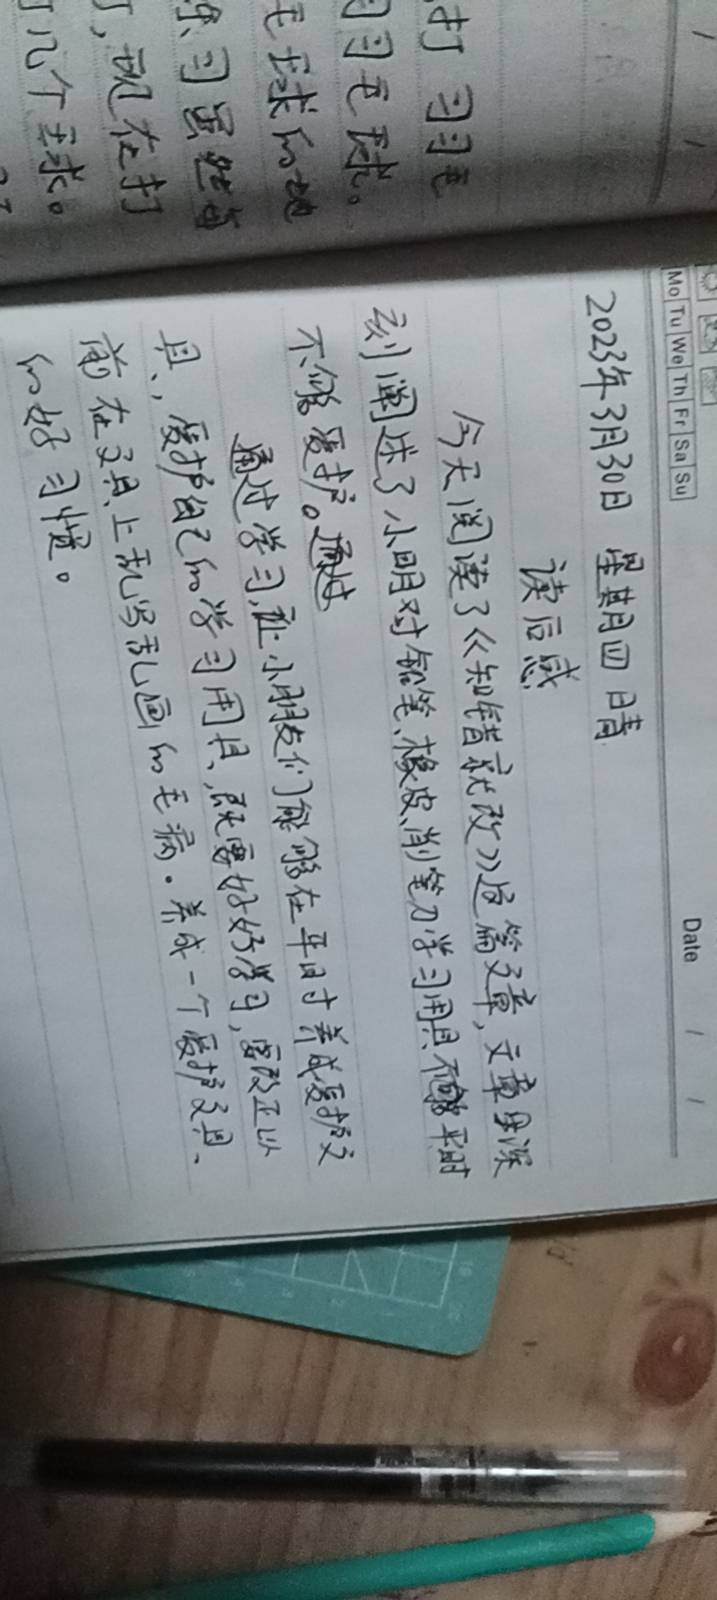 打 习习毛
习习毛球。
毛球的地
练习虽然有
了,现在打
了几个球。
Mo Tu We Th Fr Sa Su
Date / /
2023年3月30日 星期四 晴
读后感
今天阅读了《知错就改》这篇文章,文章里深
刻阐述了小明对铅笔、橡皮、削笔刀学习用具平时
不够爱护。通过
通过学习,让小朋友们能够在平时养成爱护文
具,爱护自己的学习用具,既要好好学习,要改正以
前在文具上乱写乱画的毛病。养成一个爱护文具、
的好习惯。